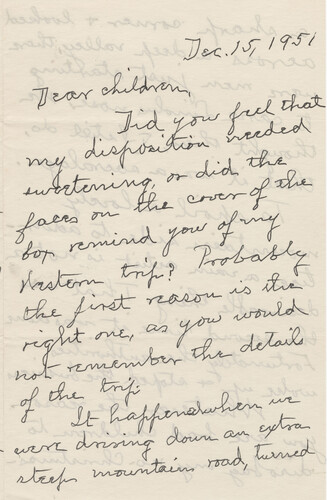 Dec. 15, 1951
Dear children,
Did you feel that
my disposition needed
sweetening, or did the
faces on the cover of the
box remind you of my
Western trip? Probably
the first reason is the
right one, as you would
not remember the details
of the trip.
It happened when we
were driving down an extra
steep mountain road, turned